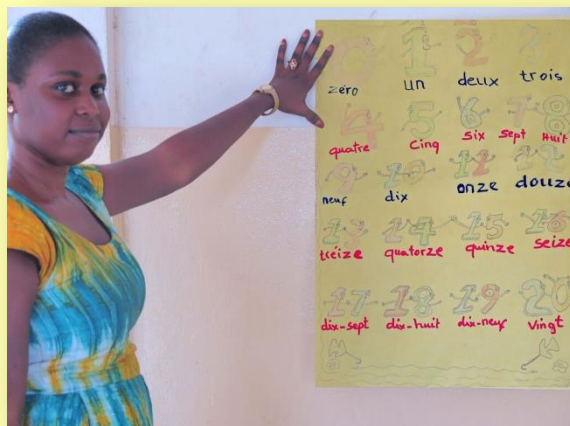 0 1 2 3
zéro un deux trois
4 5 6 7 8
quatre Cinq Six Sept Huit
9 10 11 12
neuf dix onze douze
13 14 15 16
treize quatorze quinze seize
17 18 19 20
dix-sept dix-huit dix-neuf Vingt